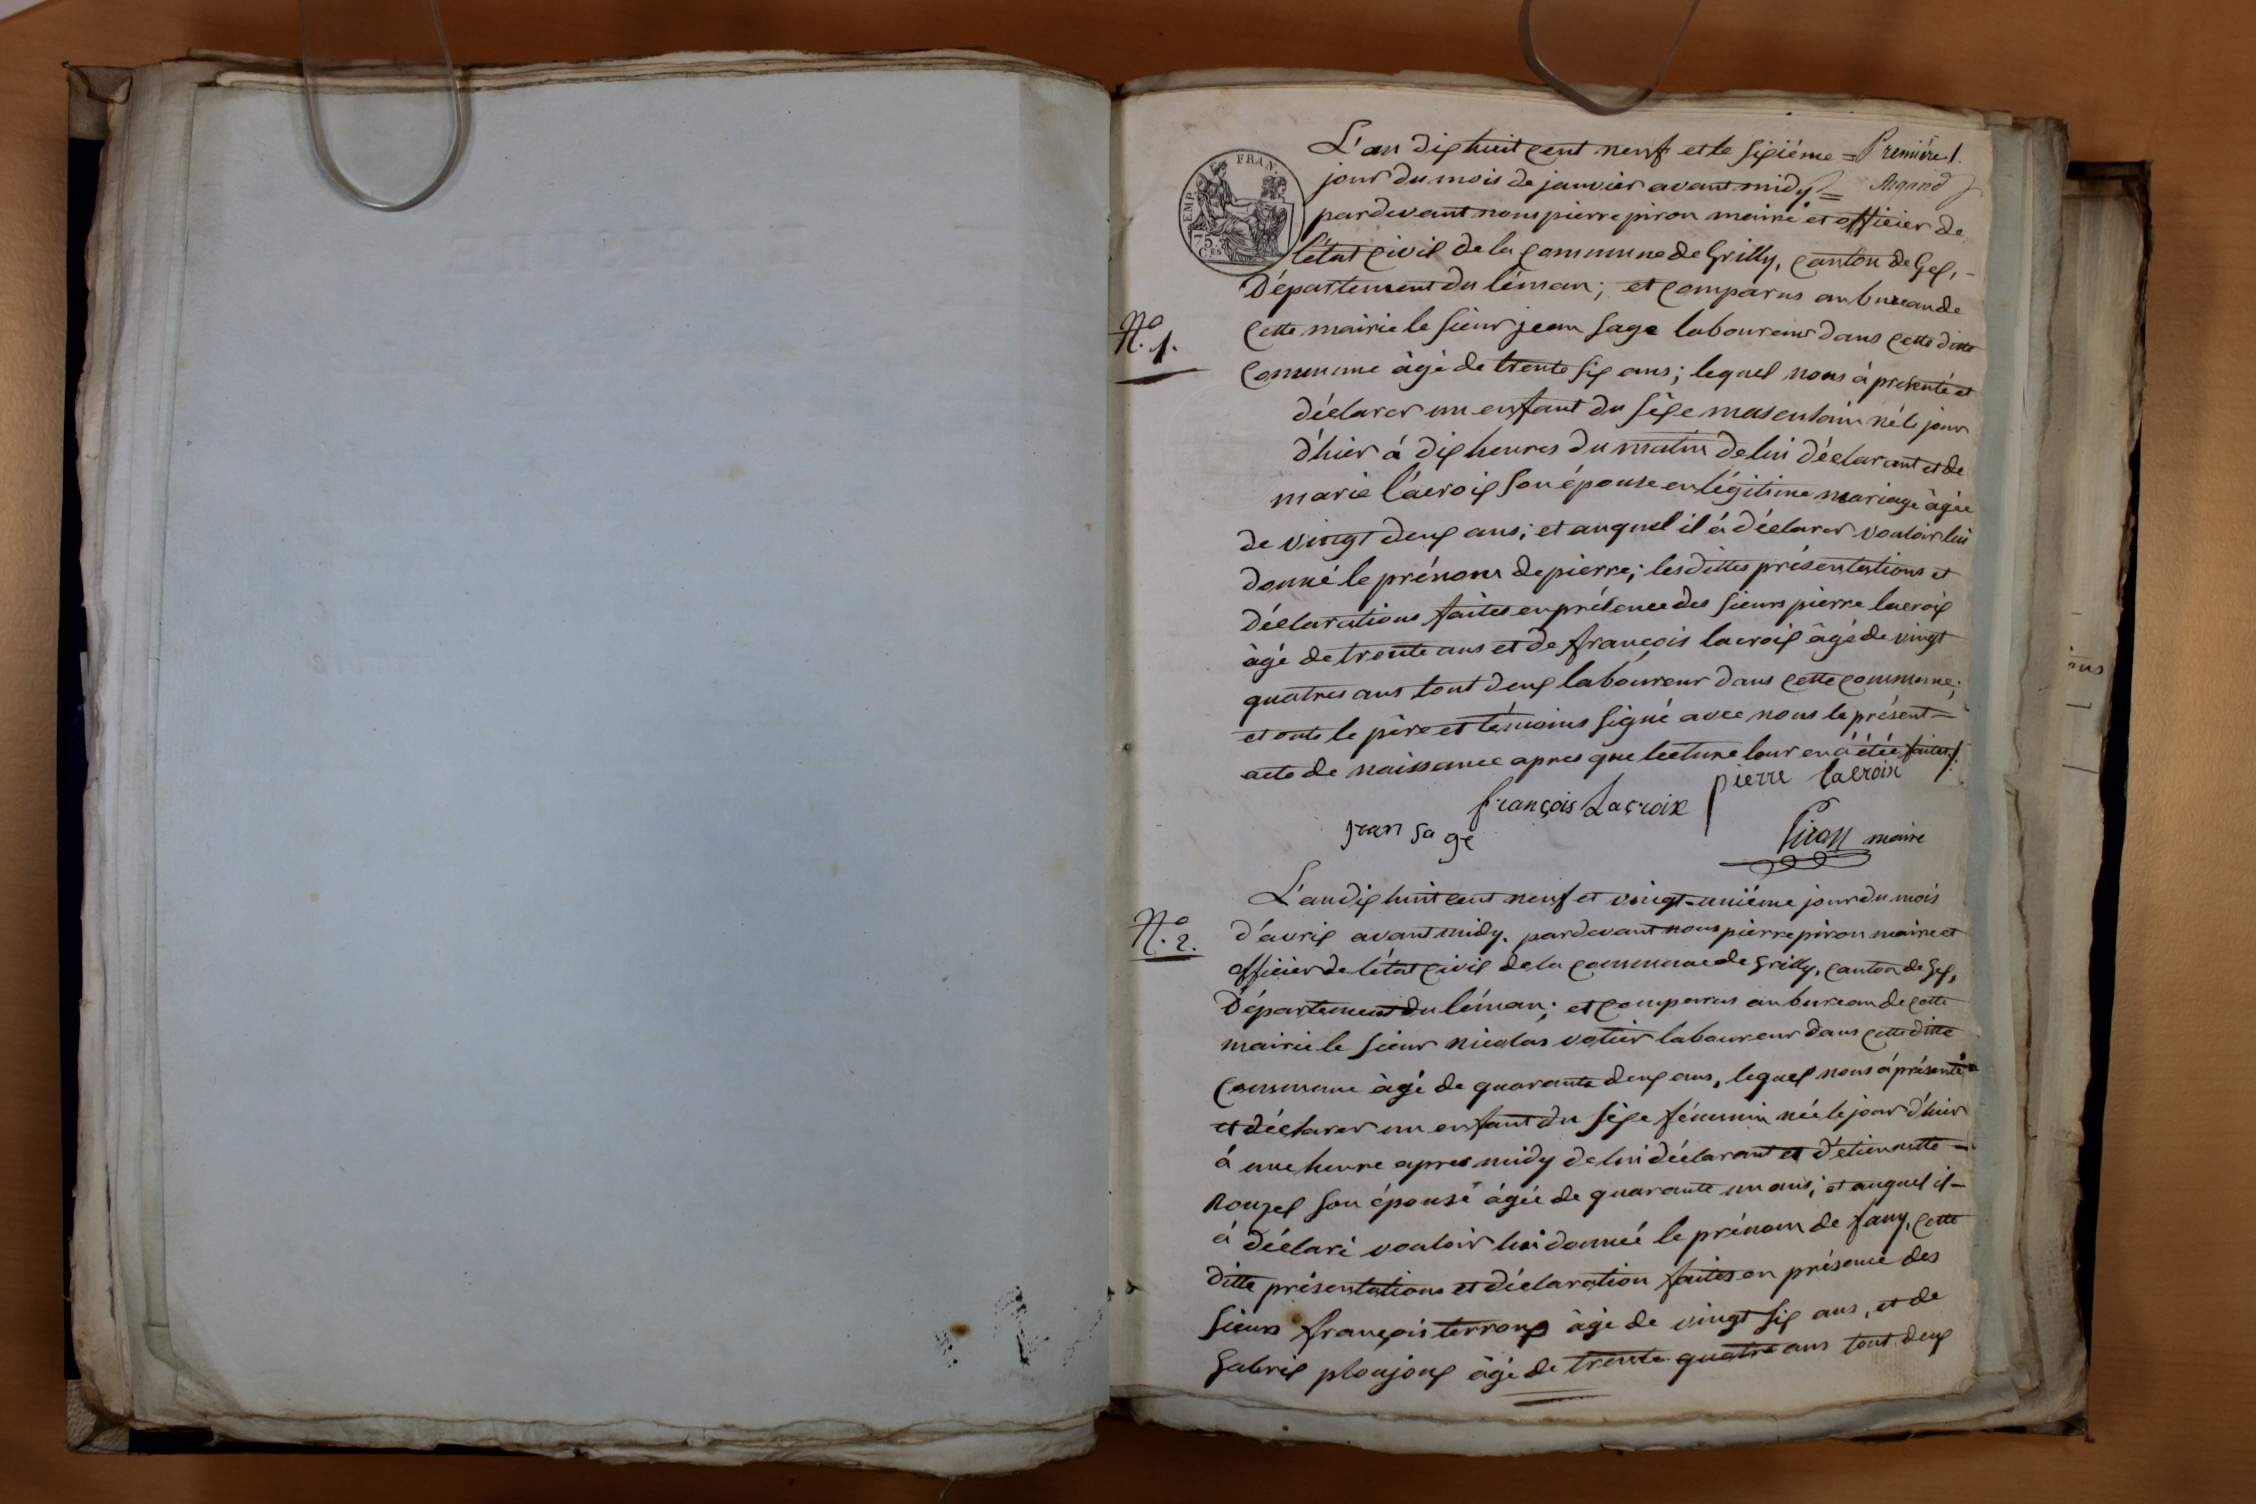 L'an dix huit cent neuf et le sixiéme = Premiére
EMP. FRAN.
jour du mois de janvier avant midy =
pardevant nous pierre piron maire et officier de
75 Ces
l'état civil de la commune de Grilly, canton de Gex, -
Département du léman; et comparus au bureau de
No. 1.
cette mairie le sieur jean sage laboureur dans cette ditte
commune àgé de trente six ans; lequel nous à présenté et
déclarer un enfant du sèxe masculain né le jour
d'hier à dix heures du matin de lui déclarant et de
marie lácroix son épouse en légitime mariage àgée
de vingt deux ans; et auquel il á déclarer vouloir lui
donné le prénom de pierre; lesdittes présentations et
déclarations faites en présence des sieurs pierre lacroix
àgé de trente ans et de françois lacroix âgé de vingt
quatres ans tout deux laboureur dans cette commune;
et onts le père et témoins signé avec nous le présent =
acte de naissance apres que lecture leur en á étée faites.
pierre lacroix
françois Lacroix
jean sage
Piron maire
L'an dix huit cent neuf et vingt-uniéme jour du mois
No. 2.
d'avril avant midy. pardevant nous pierre piron maire et
officier de l'état civil de la commune de Grilly, canton de Gex,
Département du léman; et comparus au bureau de cette
mairie le sieur nicolas votier laboureur dans cette ditte
commune àgé de quarante deux ans, lequel nous á présenté
et déclarer un enfant du sèxe féminin née le jour d'hier
á une heure apres midy de lui déclarant et d'étiennette =
Rouzel son épouse ágée de quarante un ans; et auquel il -
á déclaré vouloir lui donnée le prénom de fany, cette
ditte présentations et déclaration faites en présence des
sieurs françois terroux àgé de vingt six ans, et de
Gabriel ploujoux âgé de trente quatre ans tout deux